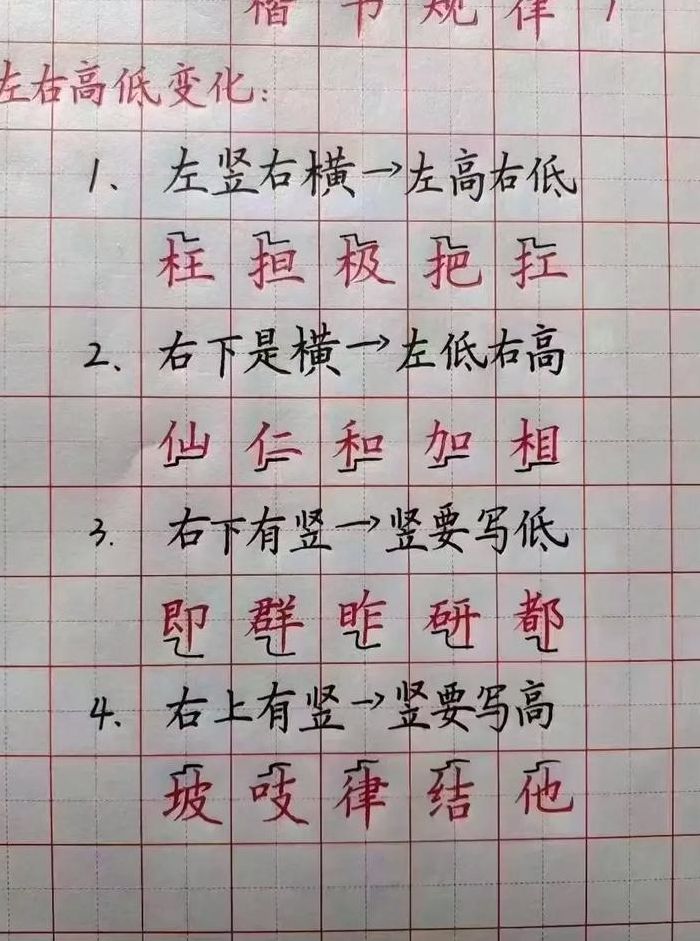 楷书规律1
左右高低变化：
1、左竖右横→左高右低
柱 担 极 把 扛
2、右下是横→左低右高
仙 仁 和 加 相
3.右下有竖→竖要写低
即 群 昨 研 都
4、右上有竖→竖要写高
坡 吱 律 结 他